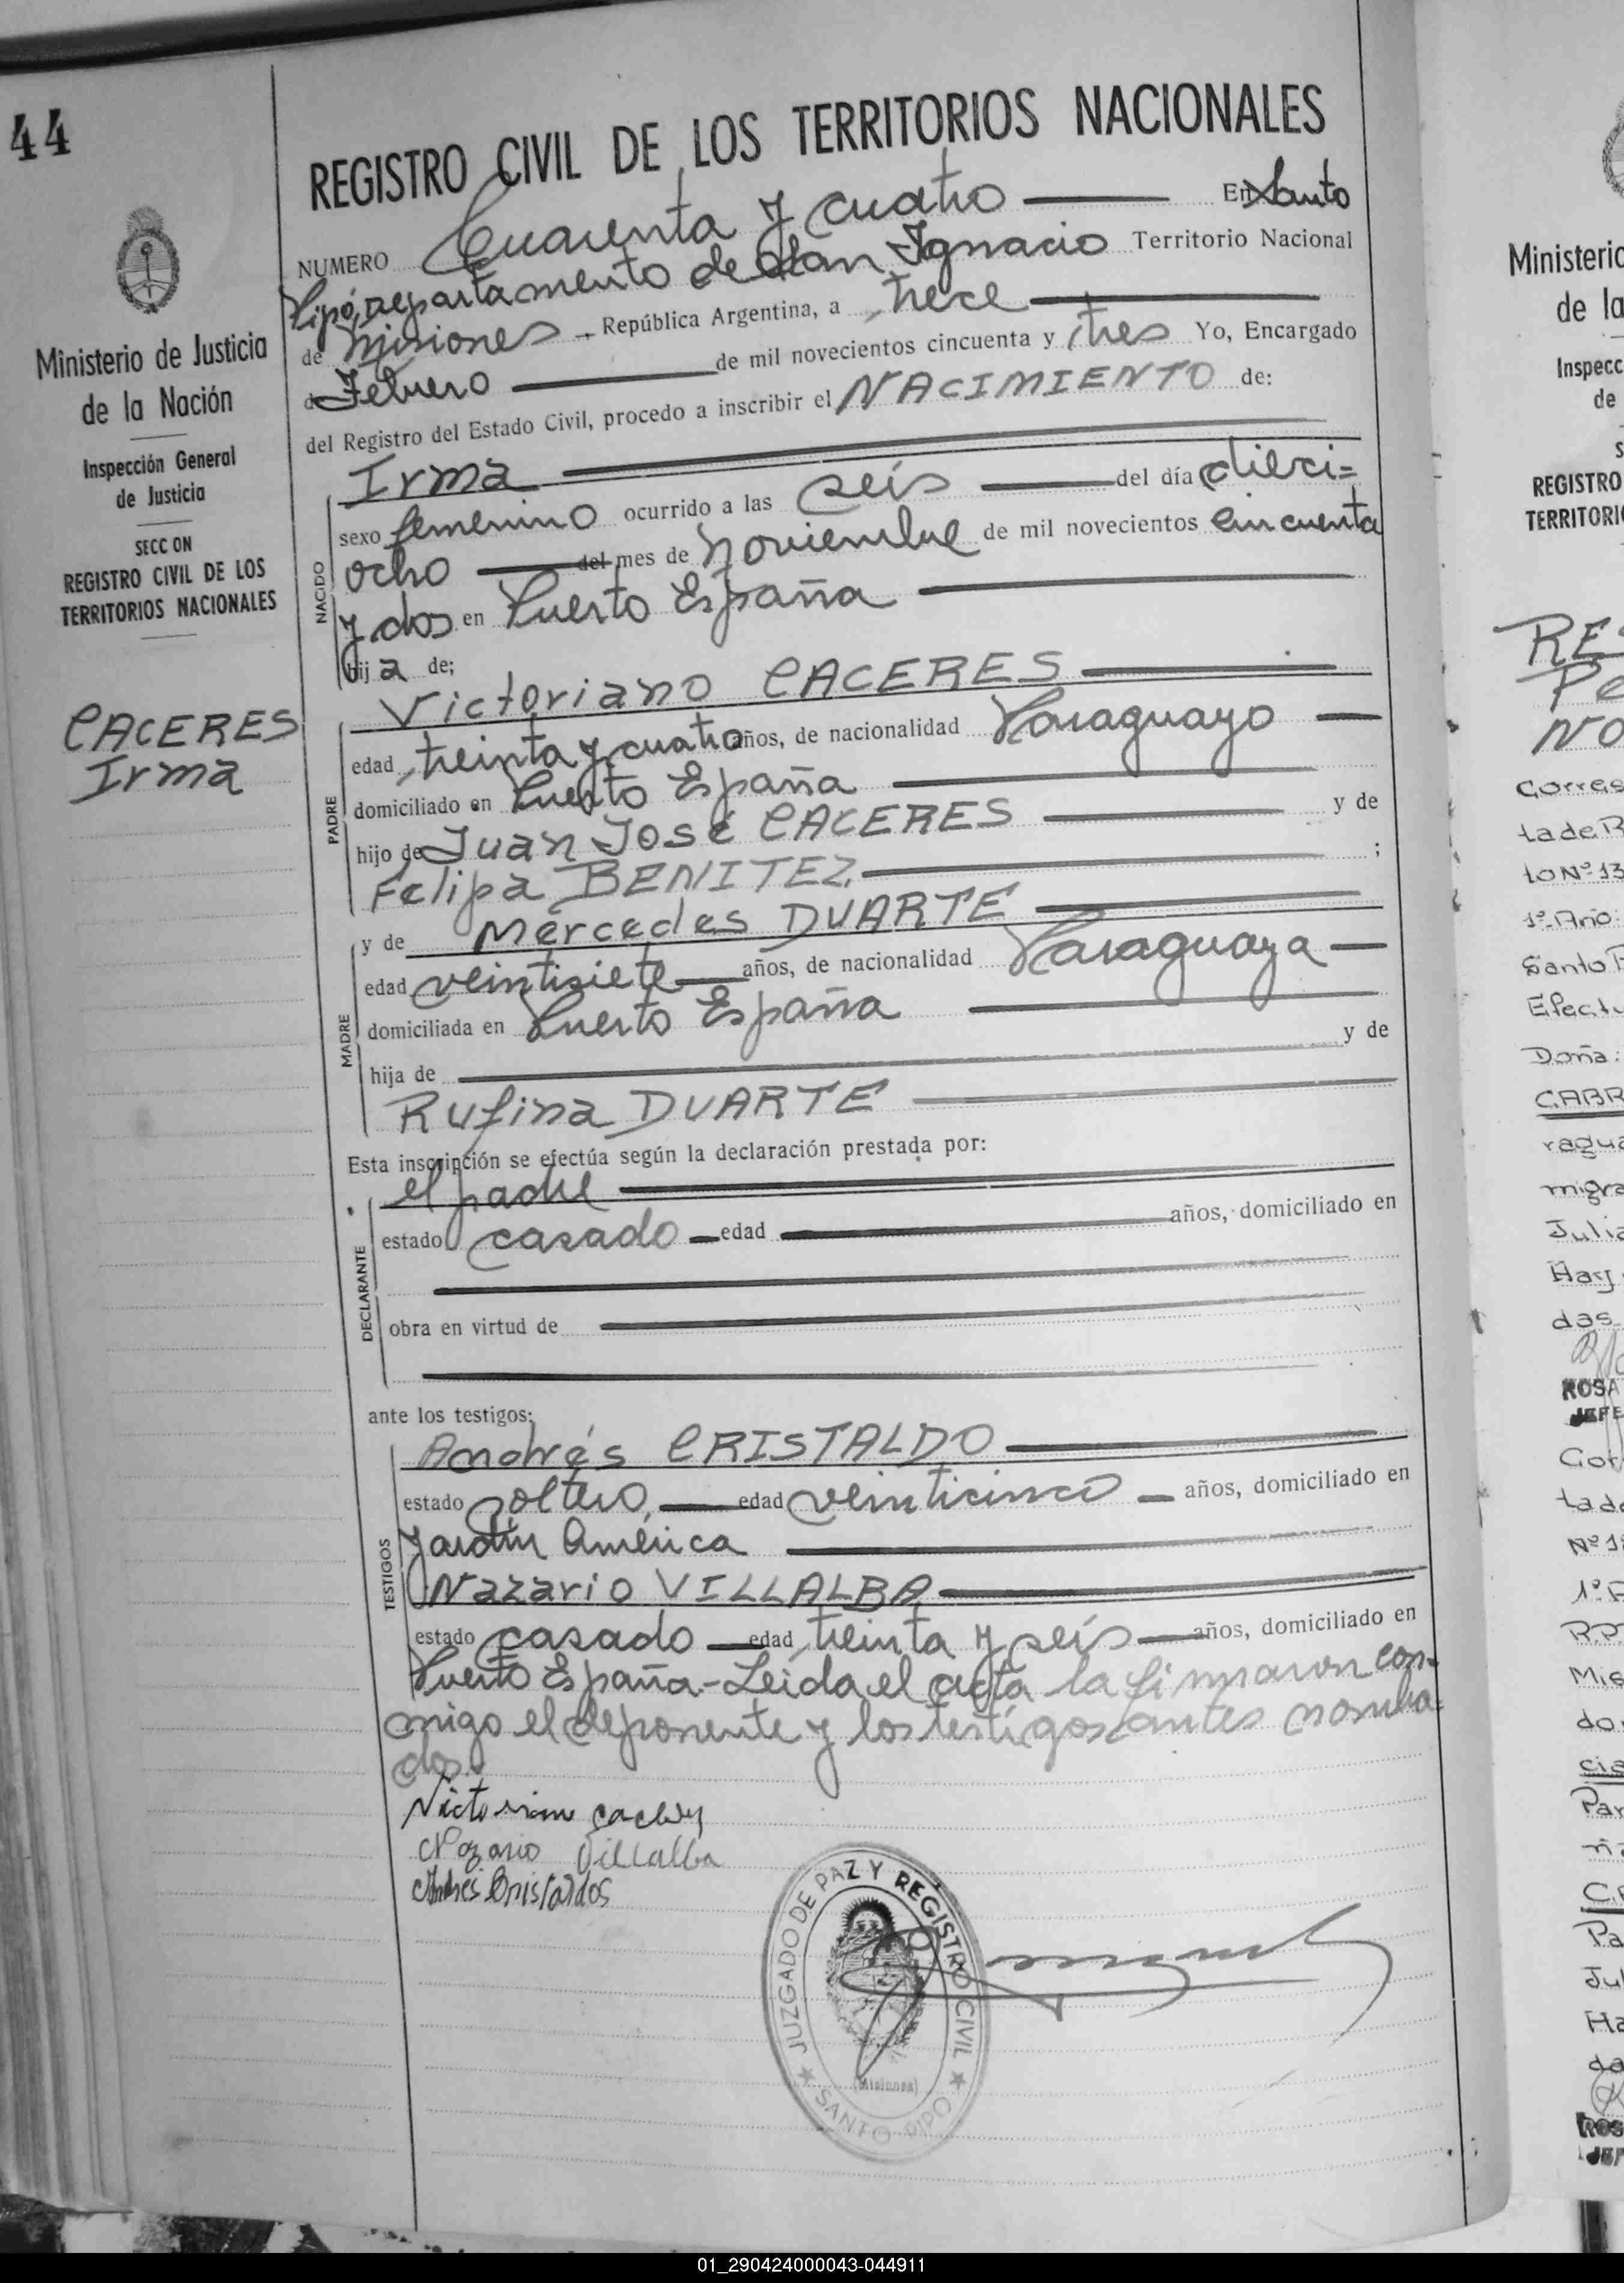 44
Ministerio de Justicia
de la Nación
Inspección General
de Justicia
SECC ON
REGISTRO CIVIL DE LOS
TERRITORIOS NACIONALES
CACERES
Irma
REGISTRO CIVIL DE LOS TERRITORIOS NACIONALES
NUMERO Cuarenta y cuatro En Santo
Pipó, departamento de San Ignacio Territorio Nacional
de Misiones República Argentina, a trece
de Febrero de mil novecientos cincuenta y tres Yo, Encargado
del Registro del Estado Civil, procedo a inscribir el NACIMIENTO de:
NACIDO
Irma
sexo femenino ocurrido a las seis del día dieci=
ocho del mes de noviembre de mil novecientos cincuenta
y dos en Puerto España
hija de;
PADRE
Victoriano CACERES
edad treinta y cuatro años, de nacionalidad Paraguayo
domiciliado en Puerto España
hijo de Juan José CACERES y de
Felipa BENITEZ ;
MADRE
y de Mercedes DUARTE
edad veintisiete años, de nacionalidad Paraguaya
domiciliada en Puerto España
hija de y de
Rufina DUARTE
Esta inscripción se efectúa según la declaración prestada por:
DECLARANTE
el padre
estado casado edad años, domiciliado en
obra en virtud de
ante los testigos:
TESTIGOS
Andrés CRISTALDO
estado soltero, edad veinticinco años, domiciliado en
Jardín América
Nazario VILLALBA
estado casado edad treinta y seis años, domiciliado en
Puerto España.- Leida el acta la firmaron con-
migo el deponente y los testigos antes nombra-
dos.
Victoriano Caceres
Nazario Villalba
Andrés Cristaldos
JUZGADO DE PAZ Y REGISTRO CIVIL
(Misiones)
SANTO PIPO
Ministerio
de la
Inspecc
de
S
REGISTRO
TERRITORI
RE
Pe
NO
Corres
ta de R
to Nº 13
1º Año
Santo P
Efectu
Doña:
CABR
ragua
migra
Julia
Hay
das
ROSA
JEFE
Cor
ta de
Nº 1
1º A
R.P.
Mis
do
cis
Par
ña
Pa
Ju
Ha
da
ROS
JEF
01_290424000043-044911